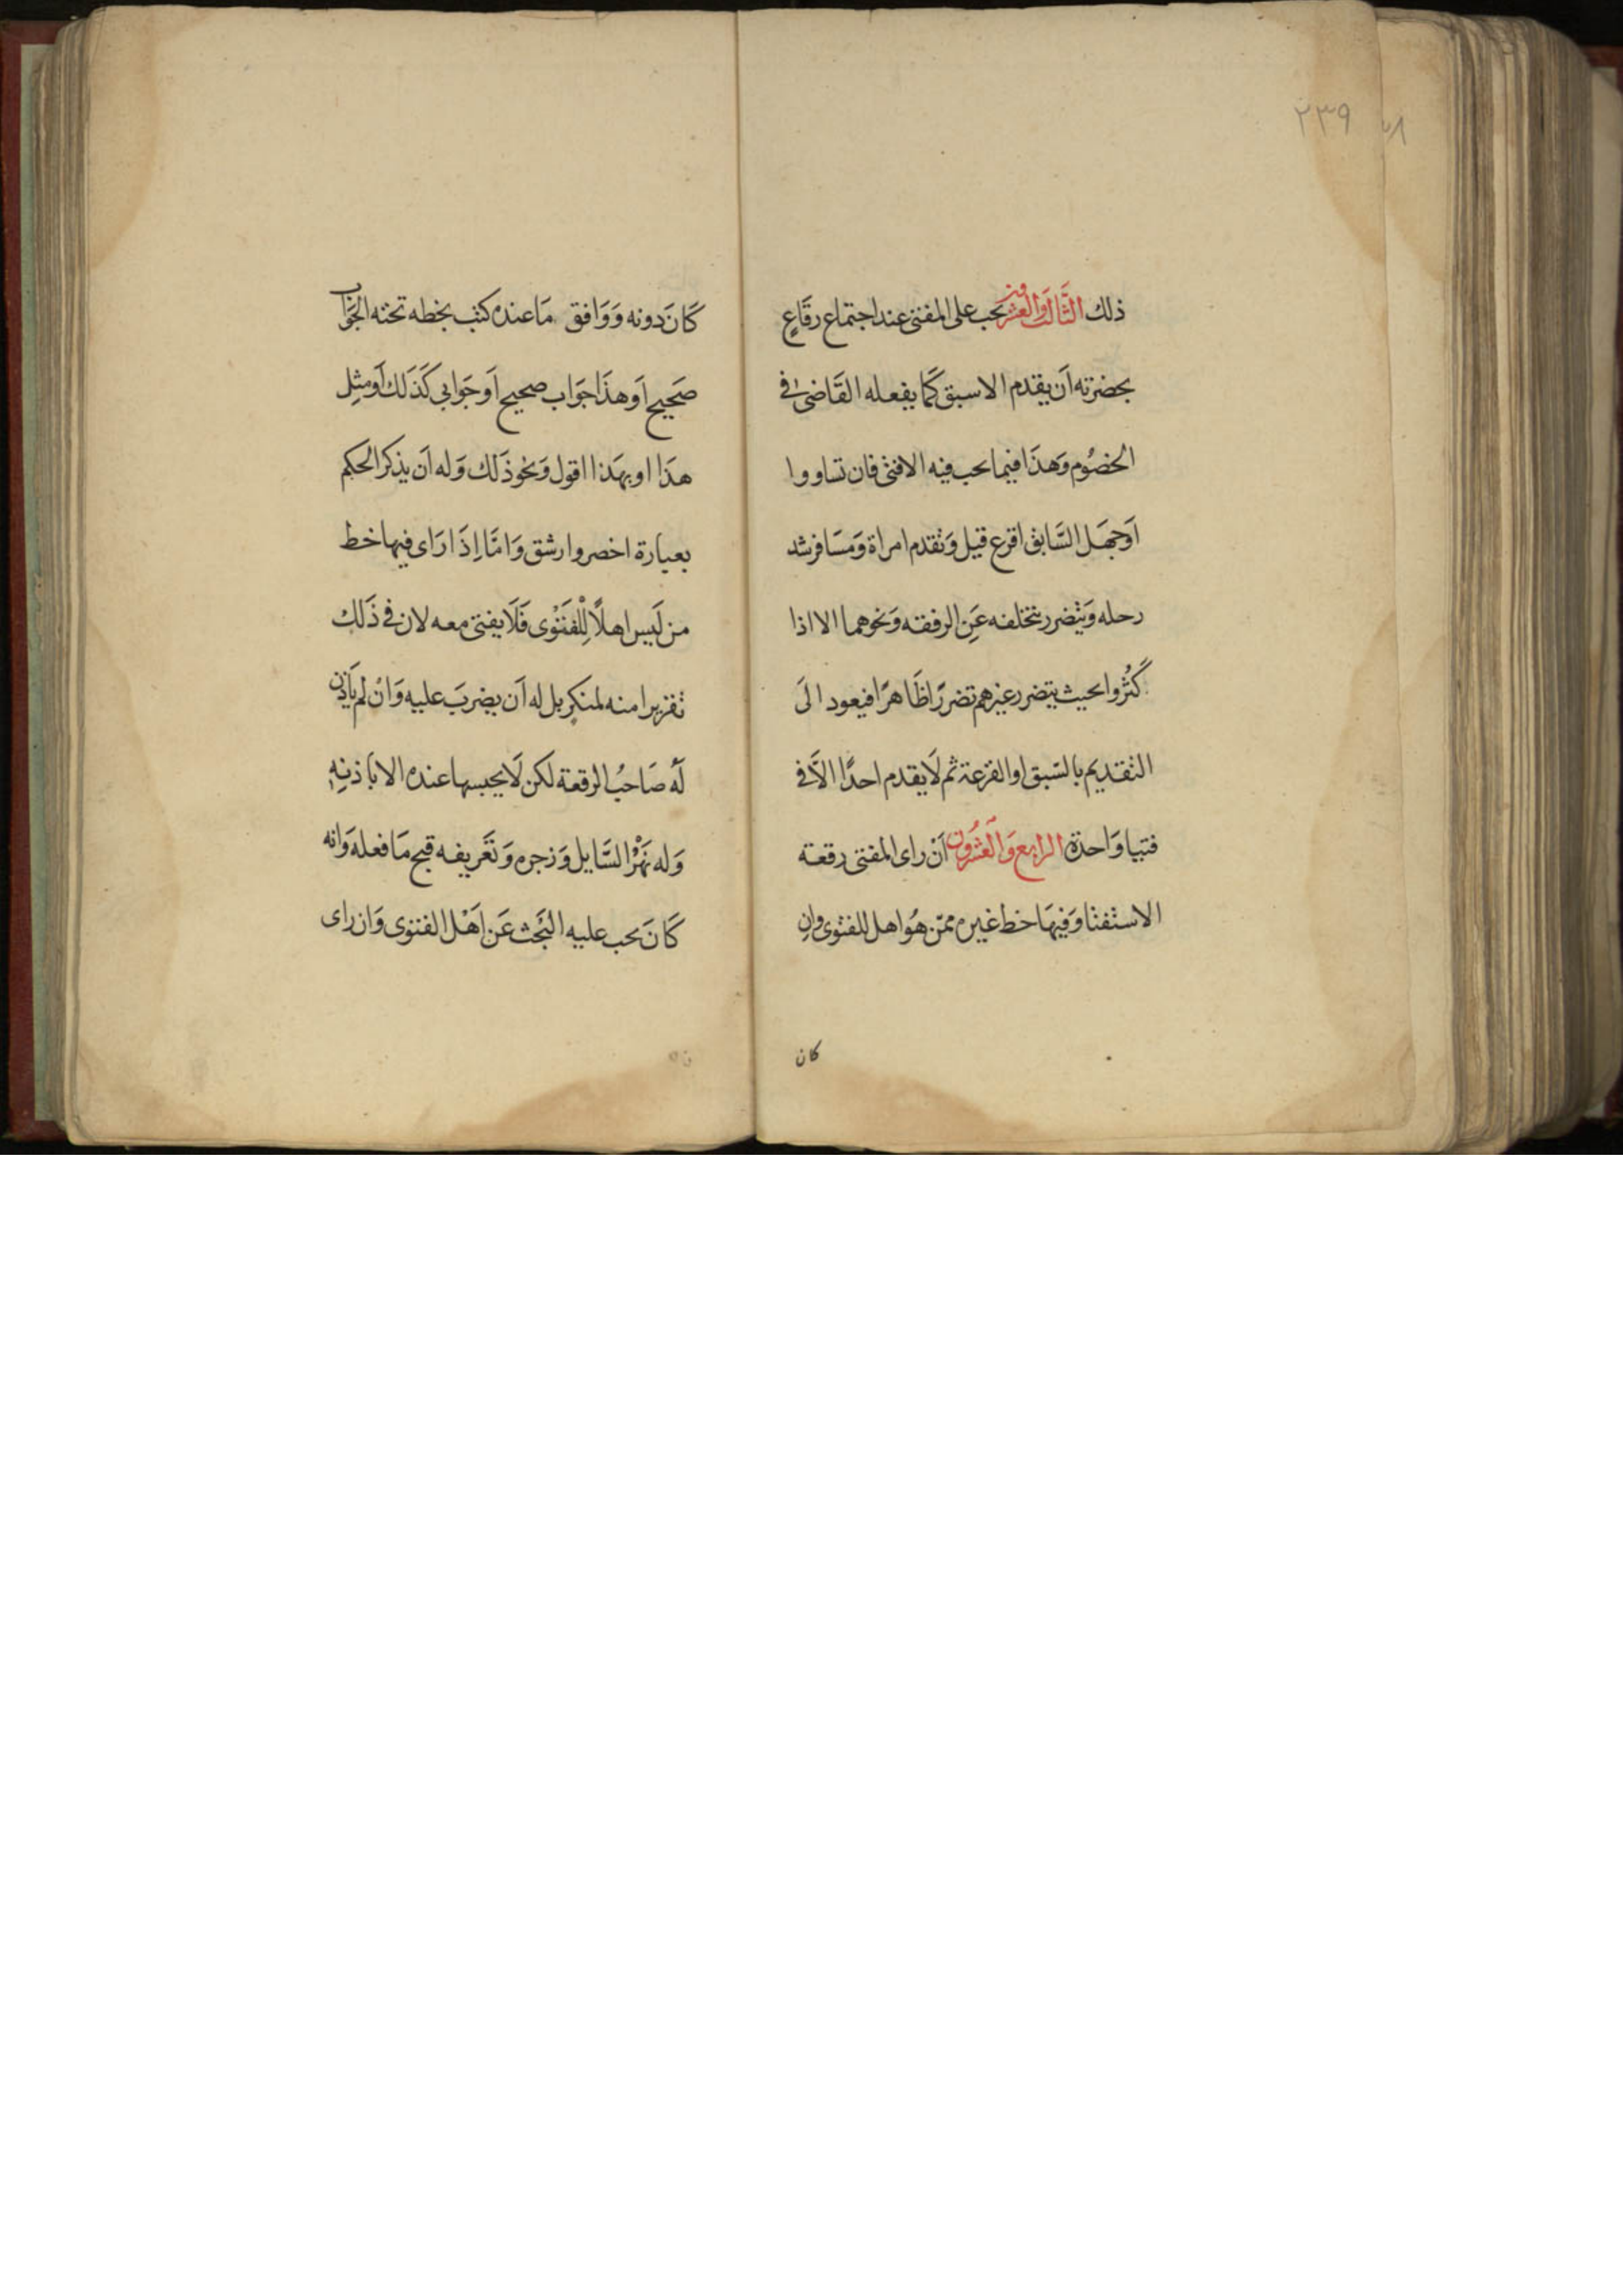 ٢٣٩
ذلك الثَّالث وَالعشرون يجب على المفتى عند اجتماع رقَاعٍ
بحضرته اَن يقدم الاسبق كَما يفعله القَاضى فى
الخصُوم وَهذَا فيما يجب فيه الافتى فان تساووا
اَوجهَل السَّابق اقرع قيل وَتقدم امراة وَمسَافر شد
رحله وَيتضرر بتخلفه عَنِ الرفقه وَنحوهما الا اذا
كَثُروا بحيث يتضرر غيرهم تضررًا ظَاهرًا فيعود الَى
التقديم بالسّبق او القرعة ثم لَا يقدم احدًا الاَّ فى
فتيا وَاحدة الرابع وَالعشرُون اَنْ راى المفتى رقعة
الاستفتا وَفيهَا خط غيره ممّن هُو اهل للفتوى وانِ
كان
كَانَ دونه وَوَافق مَا عنده كتب بخطه تحته الجَوَاب
صَحيح اَو هذَا جوَاب صحيح اَو جَوَابى كَذَلك اَو مثِل
هذَا او بهَذا اقول وَنحو ذَلك وَله اَن يذكر الحكم
بعبارة اخصر وارشق وَامَّا اِذَا رَاى فيها خط
من لَيس اهلًا لِلْفَتْوى فَلَا يفتى معه لان فى ذَلك
تقريرا منه لمنكرٍ بل له اَن يضربَ عليه وَانْ لم يَاذن
لَهُ صَاحبُ الرقعة لكن لَا يحبسها عنده الا باذنِهِ
وَله نَهْرُ السَّايل وَزجره وَتعَريفه قبح مَا فعله وَانه
كَانَ يجب عليه البَحْث عَن اَهْل الفتوى وَان راى